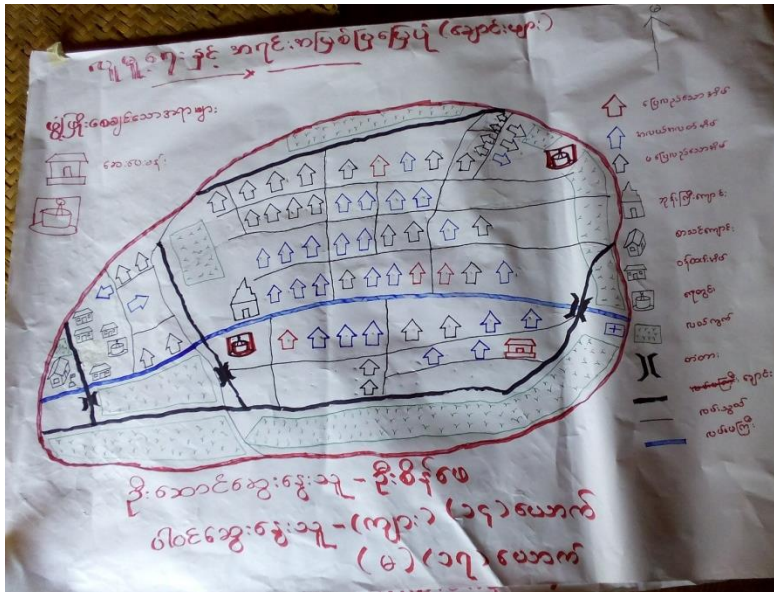 လူမှုရေးနှင့် အရင်းအမြစ်ပြမြေပုံ (ချောင်းဖျား)
ဖွံ့ဖြိုးစေချင်သောအရာများ
ဆေးပေးခန်း
ပြေလည်သောအိမ်
အလယ်အလတ်အိမ်
မပြေလည်သောအိမ်
ဘုန်းကြီးကျောင်း
စာသင်ကျောင်း
ဝန်ထမ်းအိမ်
ရေတွင်း
လယ်ကွက်
တံတား
ချောင်း
လမ်းသွယ်
လမ်းမကြီး
ဦးဆောင်ဆွေးနွေးသူ - ဦးစိန်ဖေ
ပါဝင်ဆွေးနွေးသူ - (ကျား) (၁၄) ယောက်
(မ) (၁၇) ယောက်